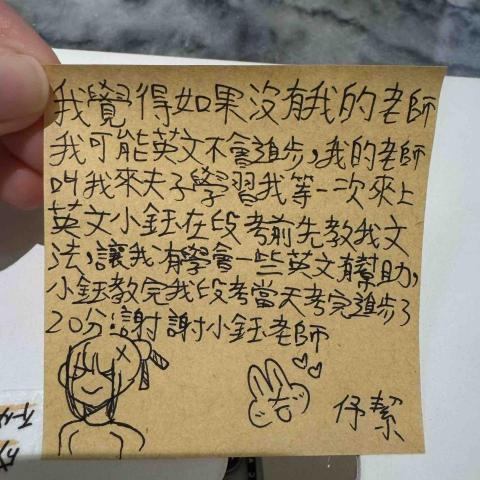 我覺得如果沒有我的老師
我可能英文不會進步,我的老師
叫我來夫子學習我第一次來上
英文小鈺在段考前先教我文
法,讓我有學會一些英文有幫助,
小鈺教完我段考當天考完進步了
20分!謝謝小鈺老師
伃潔